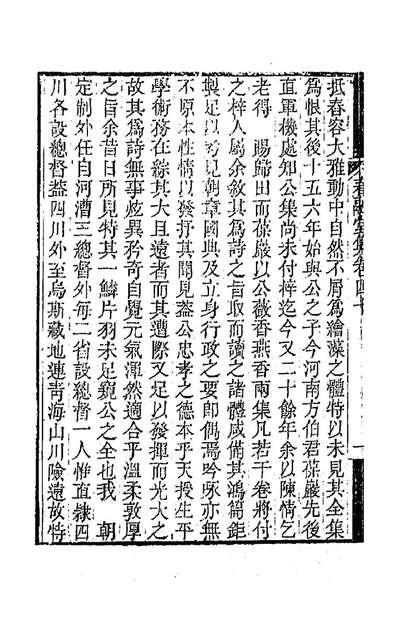 抵春容大雅動中自然不屑爲繪藻之體特以未見其全集
爲恨其後十五六年始與公之子今河南方伯君葆巖先後
直軍機處知公集尚未付梓迄今又二十餘年余以陳情乞
老得　賜歸田而葆巖以公薇香燕香兩集凡若干卷將付
之梓人屬余敘其爲詩之旨取而讀之諸體咸備其鴻篇鉅
製足以見朝章國典及立身行政之要即偶焉吟咏亦無
不原本性情以發抒其聞見蓋公忠孝之德本乎天授生平
學術務在綜其大且遠者而其遭際又足以發揮而光大之
故其爲詩無事炫異矜奇自覺元氣渾然適合乎溫柔敦厚
之旨余昔日所見特其一鱗片羽未足窺公之全也我　朝
定制外任自河漕三總督外每二省設總督一人惟直隸四
川各設總督蓋四川外至烏斯藏地連青海山川險遠故特
春融堂集卷四十